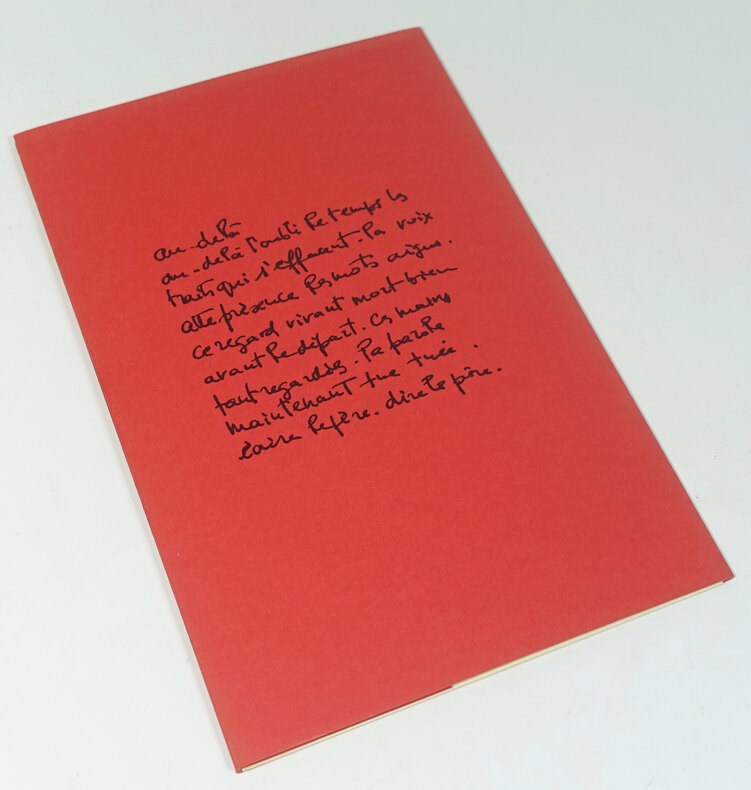 au-delà
au-delà l'oubli le temps les
traits qui s'effacent. la voix
cette présence les mots aigus.
ce regard vivant mort bien
avant le départ. ces mains
tant regardées. la parole
maintenant tue tuée.
écrire le père. dire le père.